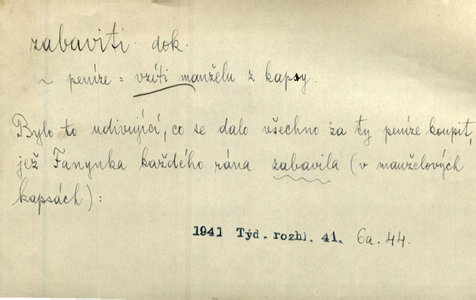 zabaviti dok.
~ peníze = vzíti manželu z kapsy.
Bylo to udivující, co se dalo všechno za ty peníze koupit,
jež Fanynka každého rána zabavila (v manželových
kapsách):
1941 Týd. rozhl. 41. 6a. 44.